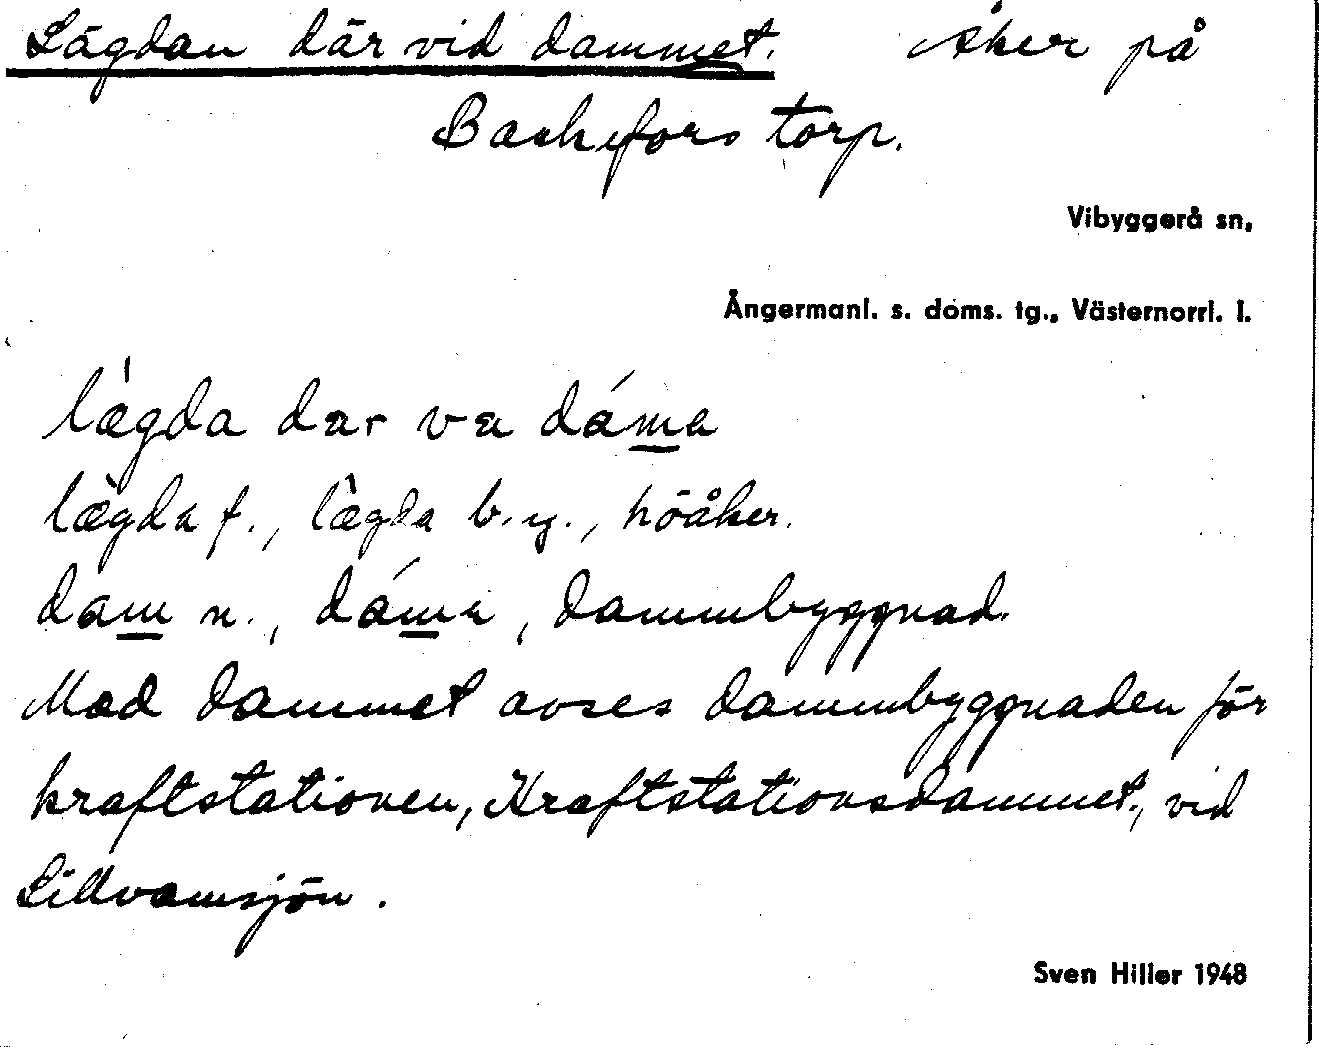 Lägdan där vid dammet. Åker på
Backefors torp.
Vibyggerå sn,
Ångermanl. s. doms. tg., Västernorrl. l.
lægda dar va dáma
lægda f., lægda b.y., höåker.
dam n., dáma, dammbyggnad.
Med dammet avses dammbyggnaden för
kraftstationen, Kraftstationsdammet, vid
Lillvamsjön.
Sven Hiller 1948